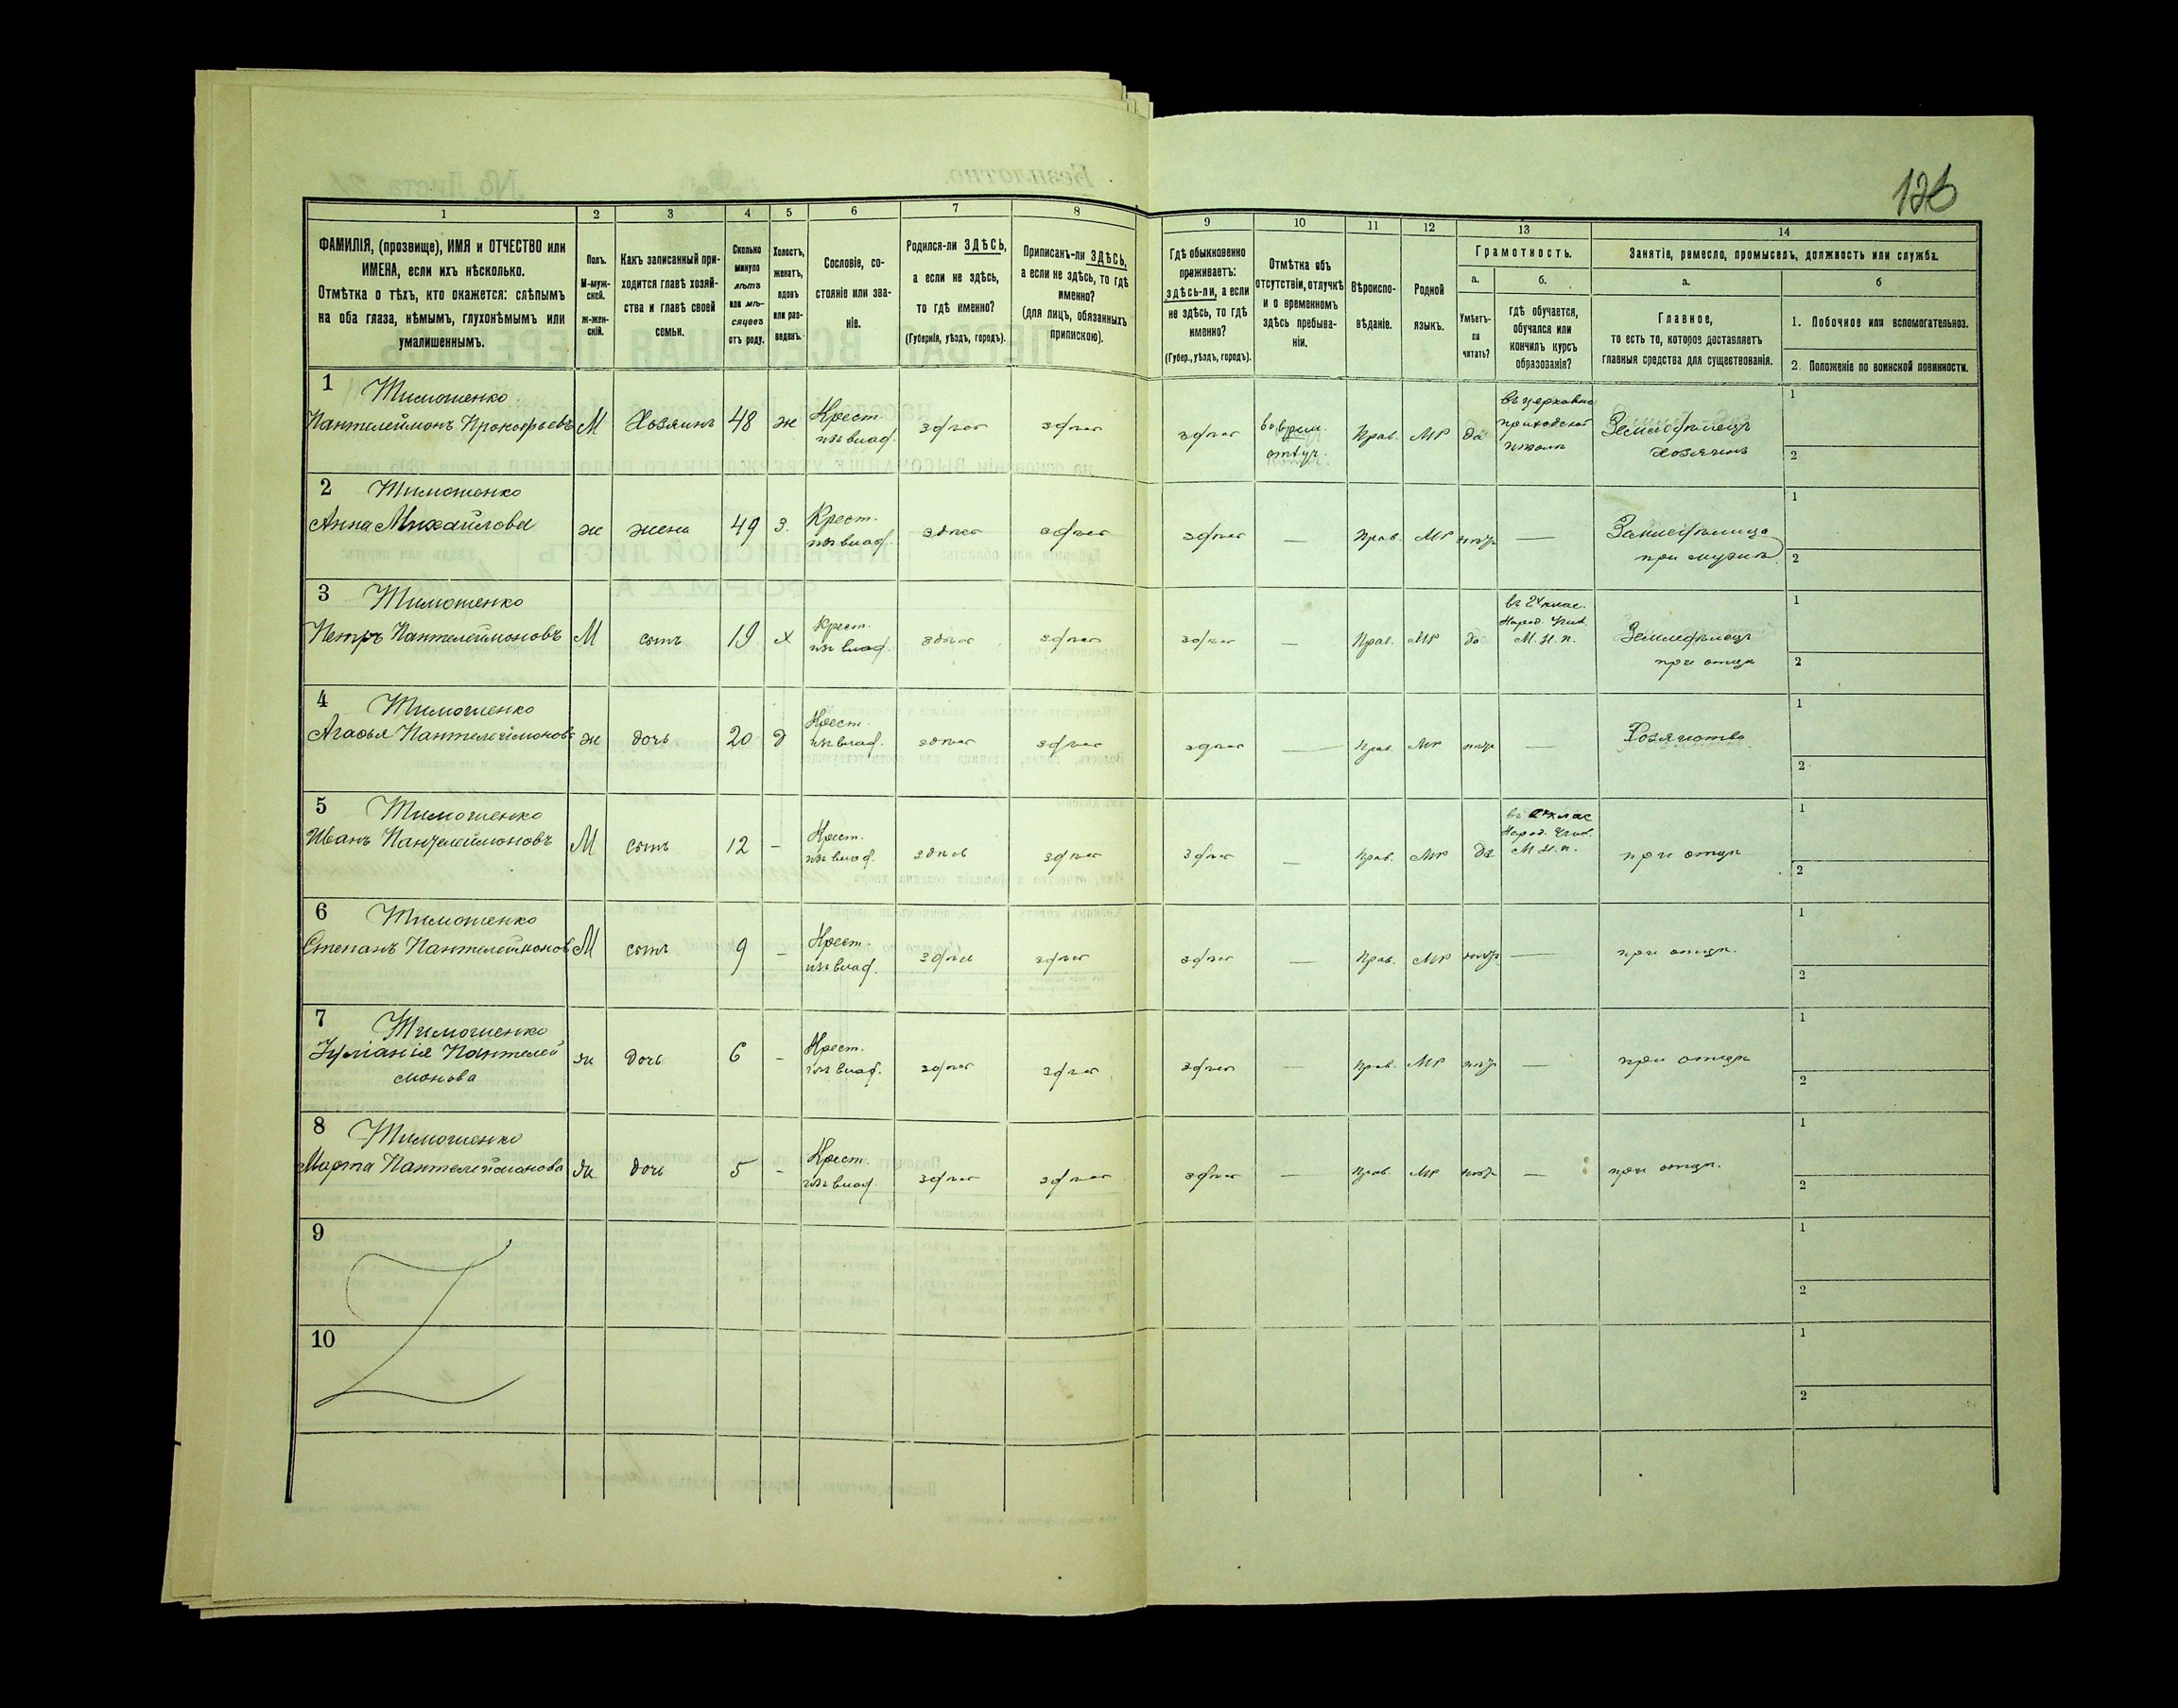 126
1 2 3 4 5 6 7 8 9 10 11 12 13 14
ФАМИЛІЯ, (прозвище), ИМЯ и ОТЧЕСТВО или
ИМЕНА, если ихъ нѣсколько.
Отмѣтка о тѣхъ, кто окажется: слѣпымъ
на оба глаза, нѣмымъ, глухонѣмымъ или
умалишеннымъ.
Полъ.
М-муж-
ской.
ж-жен-
скій.
Какъ записанный при-
ходится главѣ хозяй-
ства и главѣ своей
семьи.
Сколько
минуло
лѣтъ
или мѣ-
сяцевъ
отъ роду.
Холостъ,
женатъ,
вдовъ
или раз-
веденъ.
Сословіе, со-
стояніе или зва-
ніе.
Родился-ли ЗДѢСЬ,
а если не здѣсь,
то гдѣ именно?
(Губернія, уѣздъ, городъ).
Приписанъ-ли ЗДѢСЬ,
а если не здѣсь, то гдѣ
именно?
(для лицъ, обязанныхъ
припискою).
Гдѣ обыкновенно
проживаетъ:
здѣсь-ли, а если
не здѣсь, то гдѣ
именно?
(Губер., уѣздъ, городъ).
Отмѣтка объ
отсутствіи, отлучкѣ
и о временномъ
здѣсь пребыва-
ніи.
Вѣроиспо-
вѣданіе.
Родной
языкъ.
Грамотность.
а.
Умѣетъ-
ли
читать?
б.
гдѣ обучается,
обучался или
кончилъ курсъ
образованія?
Занятіе, ремесло, промыселъ, должность или служба.
а.
Главное,
то есть то, которое доставляетъ
главныя средства для существованія.
б
1. Побочное или вспомогательное.
2. Положеніе по воинской повинности.
1 Тимошенко
Пантелеймонъ Прокофьевъ М Хозяинъ 48 ж Крест.
изъ влад. здѣсь здѣсь здѣсь во врем.
отлуч. Прав. МР да въ церковно
приходской
школѣ Земледѣлецъ
хозяинъ 1
2
2 Тимошенко
Анна Михайлова ж жена 49 з. Крест.
изъ влад. здѣсь здѣсь здѣсь — Прав. МР нѣтъ — Земледѣлица
при мужѣ 1
2
3 Тимошенко
Петръ Пантелеймоновъ М сынъ 19 х Крест.
изъ влад. здѣсь здѣсь здѣсь — Прав. МР да въ 2х клас.
Народ. Учил.
М. Н. П. Земледѣлецъ
при отцѣ 1
2
4 Тимошенко
Агафья Пантелеймонов ж дочь 20 д Крест.
изъ влад. здѣсь здѣсь здѣсь — Прав. МР нѣтъ — Хозяйство 1
2
5 Тимошенко
Иванъ Пантелеймоновъ М сынъ 12 - Крест.
изъ влад. здѣсь здѣсь здѣсь — Прав. МР да въ 2хклас
Народ. Учил.
М. Н. П. при отцѣ 1
2
6 Тимошенко
Степанъ Пантелеймонов М сынъ 9 - Крест.
изъ влад. здѣсь здѣсь здѣсь — Прав. МР нѣтъ — при отцѣ. 1
2
7 Тимошенко
Іуліанія Пантелей
монова ж дочь 6 - Крест.
изъ влад. здѣсь здѣсь здѣсь — Прав. МР нѣтъ — при отцѣ 1
2
8 Тимошенко
Марта Пантелеймонова ж дочь 5 - Крест.
изъ влад. здѣсь здѣсь здѣсь — Прав. МР нѣтъ — при отцѣ. 1
2
9 1
2
10 1
2